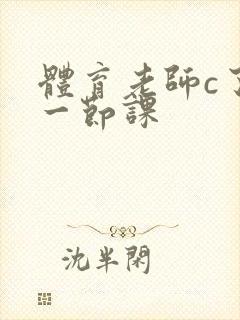 體育老師c了
一節課
沈半閑